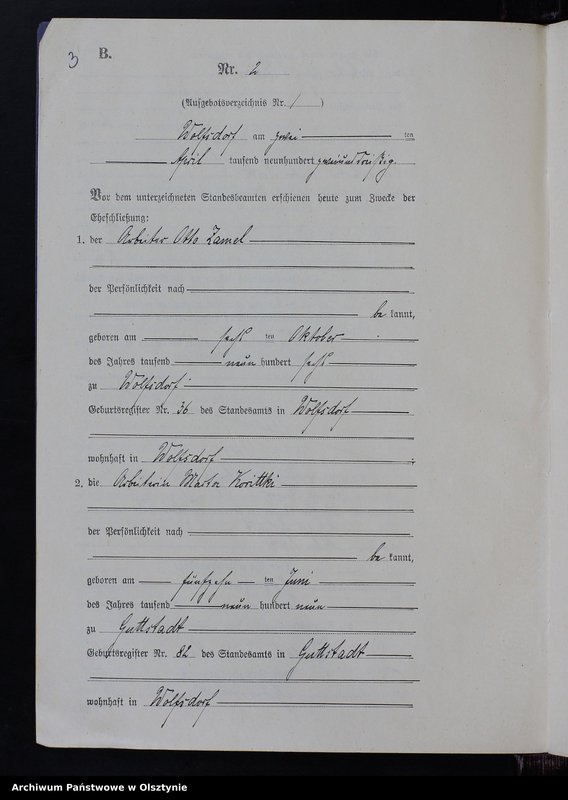 3
B.
Nr. 2
(Aufgebotsverzeichnis Nr. 1)
Wolfsdorf am zwei ten
April tausend neunhundert zweiunddreißig
Vor dem unterzeichneten Standesbeamten erschienen heute zum Zwecke der
Eheschließung:
1. der Arbeiter Otto Zamel
der Persönlichkeit nach
be kannt,
geboren am sechs ten Oktober
des Jahres tausend neun hundert sechs
zu Wolfsdorf
Geburtsregister Nr. 36 des Standesamts in Wolfsdorf
wohnhaft in Wolfsdorf
2. die Arbeiterin Marta Korittki
der Persönlichkeit nach
be kannt,
geboren am fünfzehn ten Juni
des Jahres tausend neun hundert neun
zu Guttstadt
Geburtsregister Nr. 82 des Standesamts in Guttstadt
wohnhaft in Wolfsdorf
Archiwum Państwowe w Olsztynie